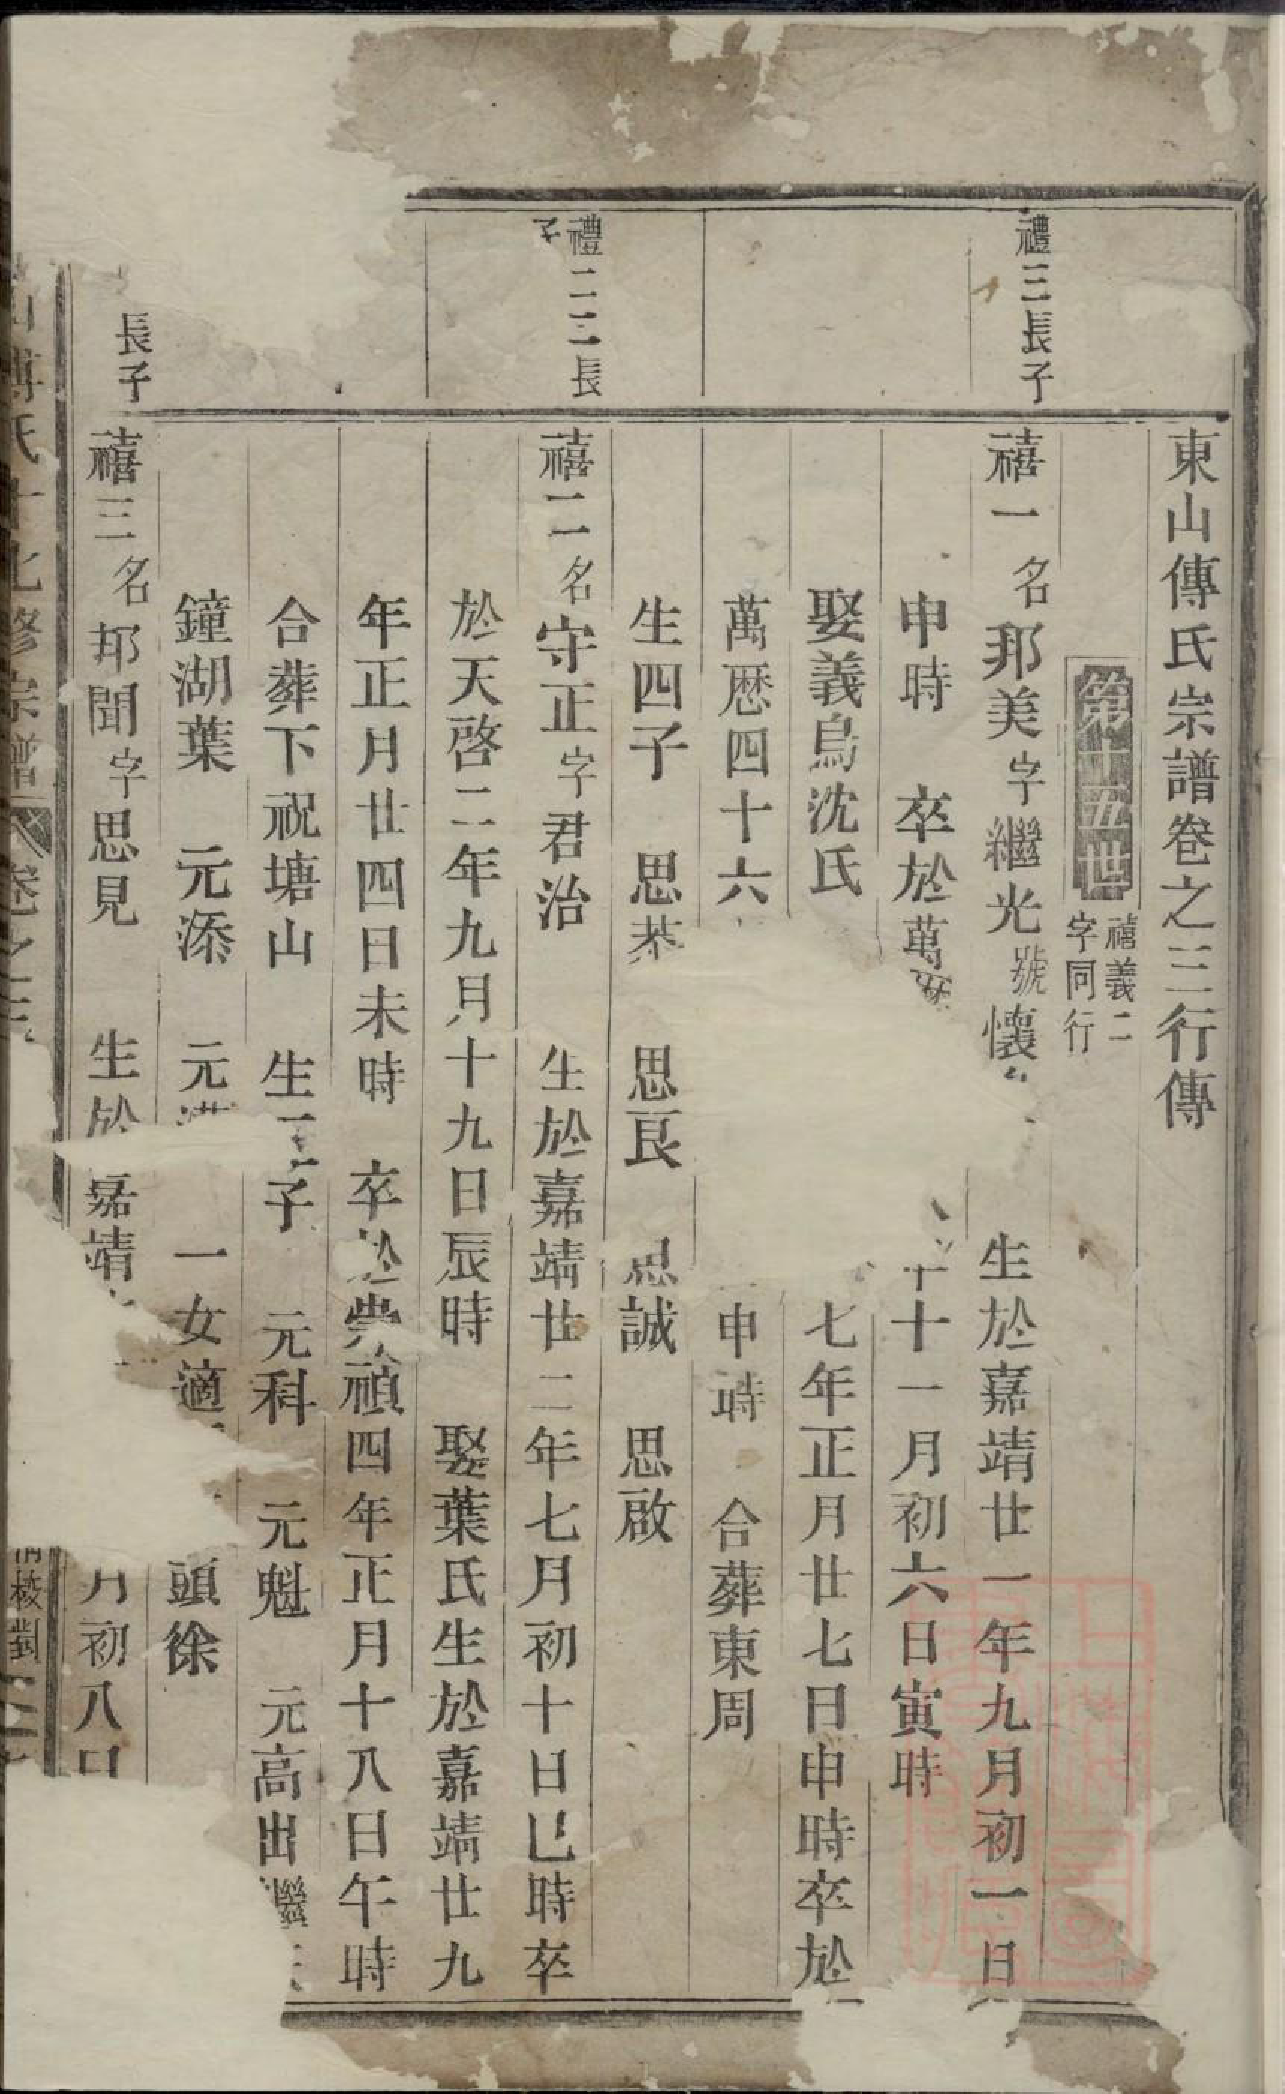 東山傅氏宗譜卷之三行傳
第十五世
禧義二
字同行
禮三長子
禧一名邦美字繼光號懷
生於嘉靖廿一年九月初一日
申時 卒於萬歷
十一月初六日寅時
娶義烏沈氏
七年正月廿七日申時卒於
萬歷四十六
申時 合葬東周
生四子 思恭 思良 思誠 思啟
禮二二長
子
禧二名守正字君治 生於嘉靖廿二年七月初十日巳時卒
於天啓二年九月十九日辰時 娶葉氏生於嘉靖廿九
年正月廿四日未時 卒於崇禎四年正月十八日午時
合葬下祝塘山 生 子 元科 元魁 元高出繼
鐘湖葉 元添 元 一女適 頭徐
長子
禧三名邦聞字思見 生於嘉靖 月初八日
山傅氏十七修宗譜 卷之三
校對